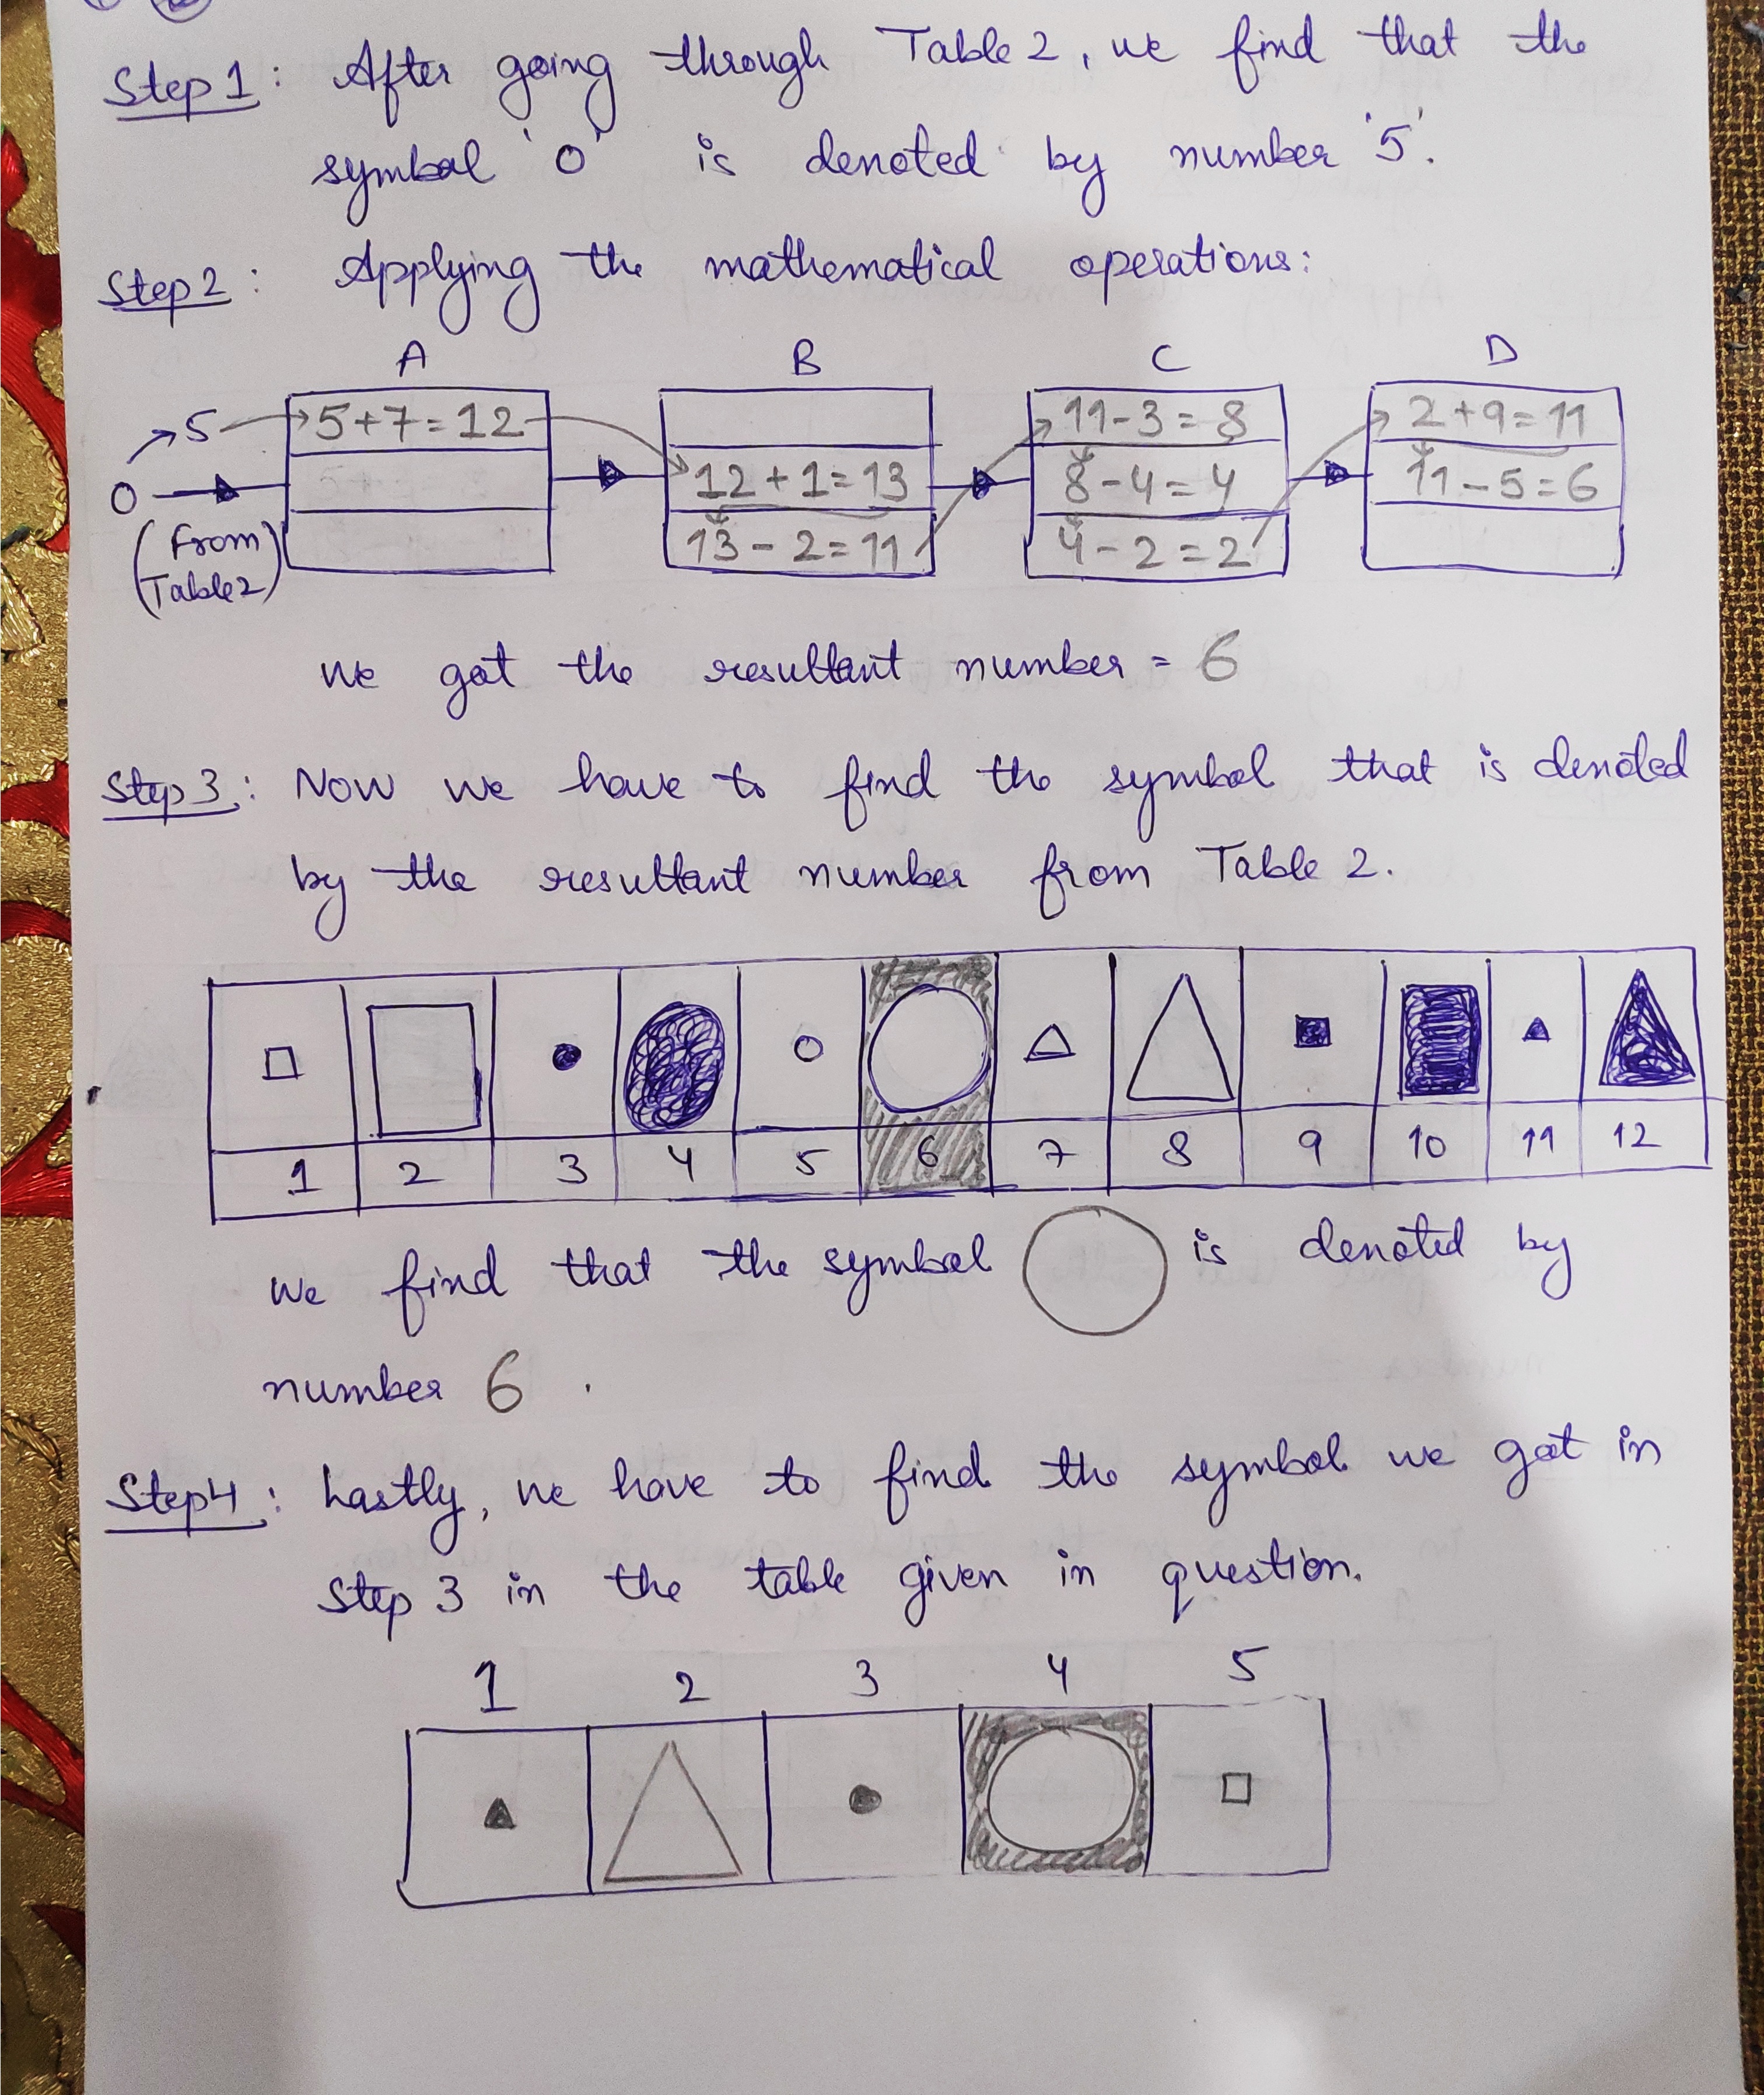 Step 1 : After going through Table 2, we find that the
symbol 'o' is denoted by number '5'.
Step 2 : Applying the mathematical operations:
A B C D
5 5+7=12 11-3=8 2+9=11
O 12+1=13 8-4=4 11-5=6
(From Table 2) 13-2=11 4-2=2
we got the resultant number = 6
Step 3 : Now we have to find the symbol that is denoted
by the resultant number from Table 2.
1 2 3 4 5 6 7 8 9 10 11 12
we find that the symbol is denoted by
number 6 .
Step 4 : Lastly, we have to find the symbol we got in
Step 3 in the table given in question.
1 2 3 4 5